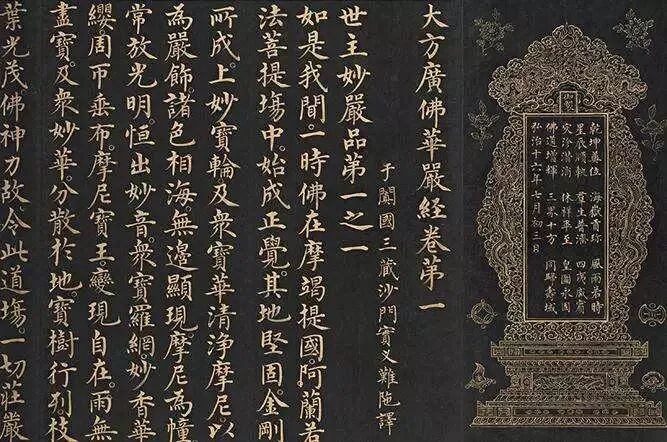 御製
乾坤奠位 海嶽 風雨若時
星辰順軌 羣生普濟 四 咸
灾沴潛消 休祥畢至 皇圖永固
佛道增輝 三界十方 同歸壽域
弘治十六年七月初二日
大方廣佛華嚴經卷第一
于闐國三藏沙門實叉難陁譯
世主妙嚴品第一之一
如是我聞。一時佛在摩竭提國。阿蘭若
法菩提場中。始成正覺。其地堅固。金剛
所成。上妙寶輪及衆寶華清淨摩尼以
為嚴飾。諸色相海無邊顯現。摩尼為幢
常放光明。恒出妙音。衆寶羅網。妙香華
纓。周帀垂布。摩尼寶王變現自在。雨無
盡寶。及衆妙華。分散於地。寶樹行列。枝
葉光茂。佛神力故。令此道場。一切莊嚴